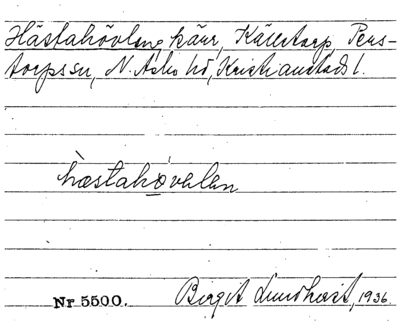 Hästahövlen, kärr, Källetorp, Pers-
torps sn, N. Åsbo hd, Kristianstads l.
hæstahøvələn
Nr 5500. Birgit Lundkvist, 1936.